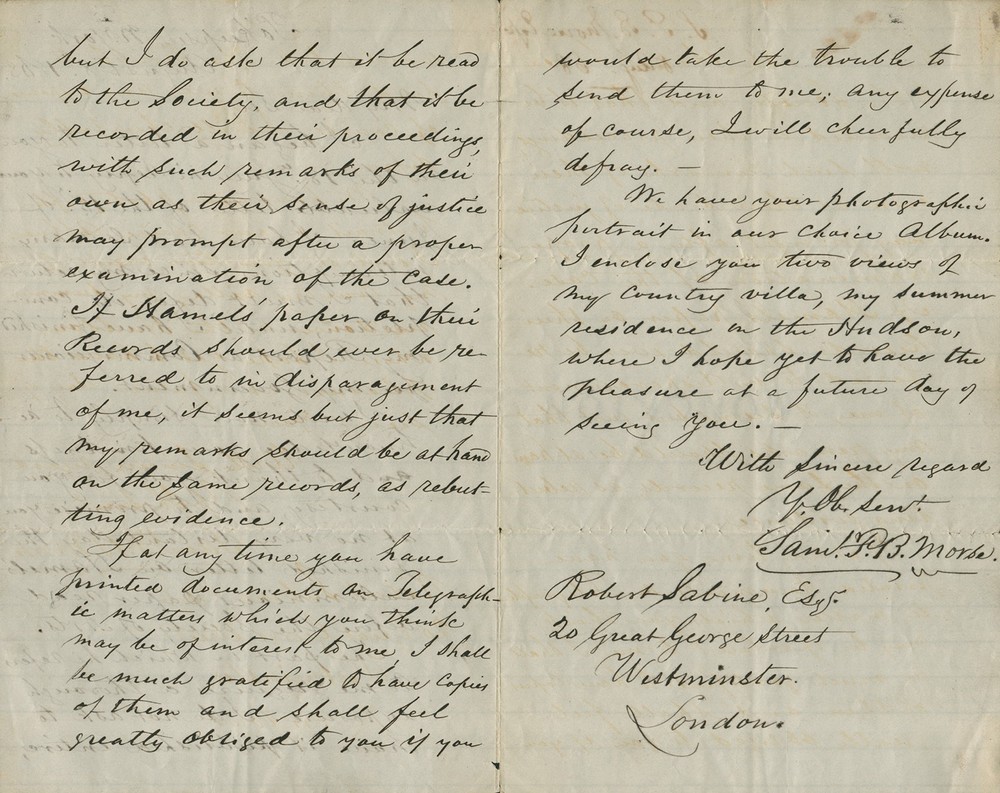 but I do ask that it be read
to the Society, and that it be
recorded in their proceedings,
with such remarks of their
own as their sense of justice
may prompt after a proper
examination of the case.
If Hamel's paper on their
Records should ever be re-
ferred to in disparagement
of me, it seems but just that
my remarks should be at hand
on the same records, as rebut-
ting evidence.
If at any time you have
printed documents on Telegraph-
ic matters which you think
may be of interest to me, I shall
be much gratified to have copies
of them and shall feel
greatly obliged to you if you
would take the trouble to
send them to me; any expense
of course, I will cheerfully
defray. —
We have your photographic
portrait in our choice Album.
I enclose you two views of
my country villa, my summer
residence on the Hudson,
where I hope yet to have the
pleasure at a future day of
seeing you. —
With sincere regard
Y. Ob. Servt.
Saml. F. B. Morse.
Robert Sabine, Esqr.
20 Great George Street
Westminster.
London.